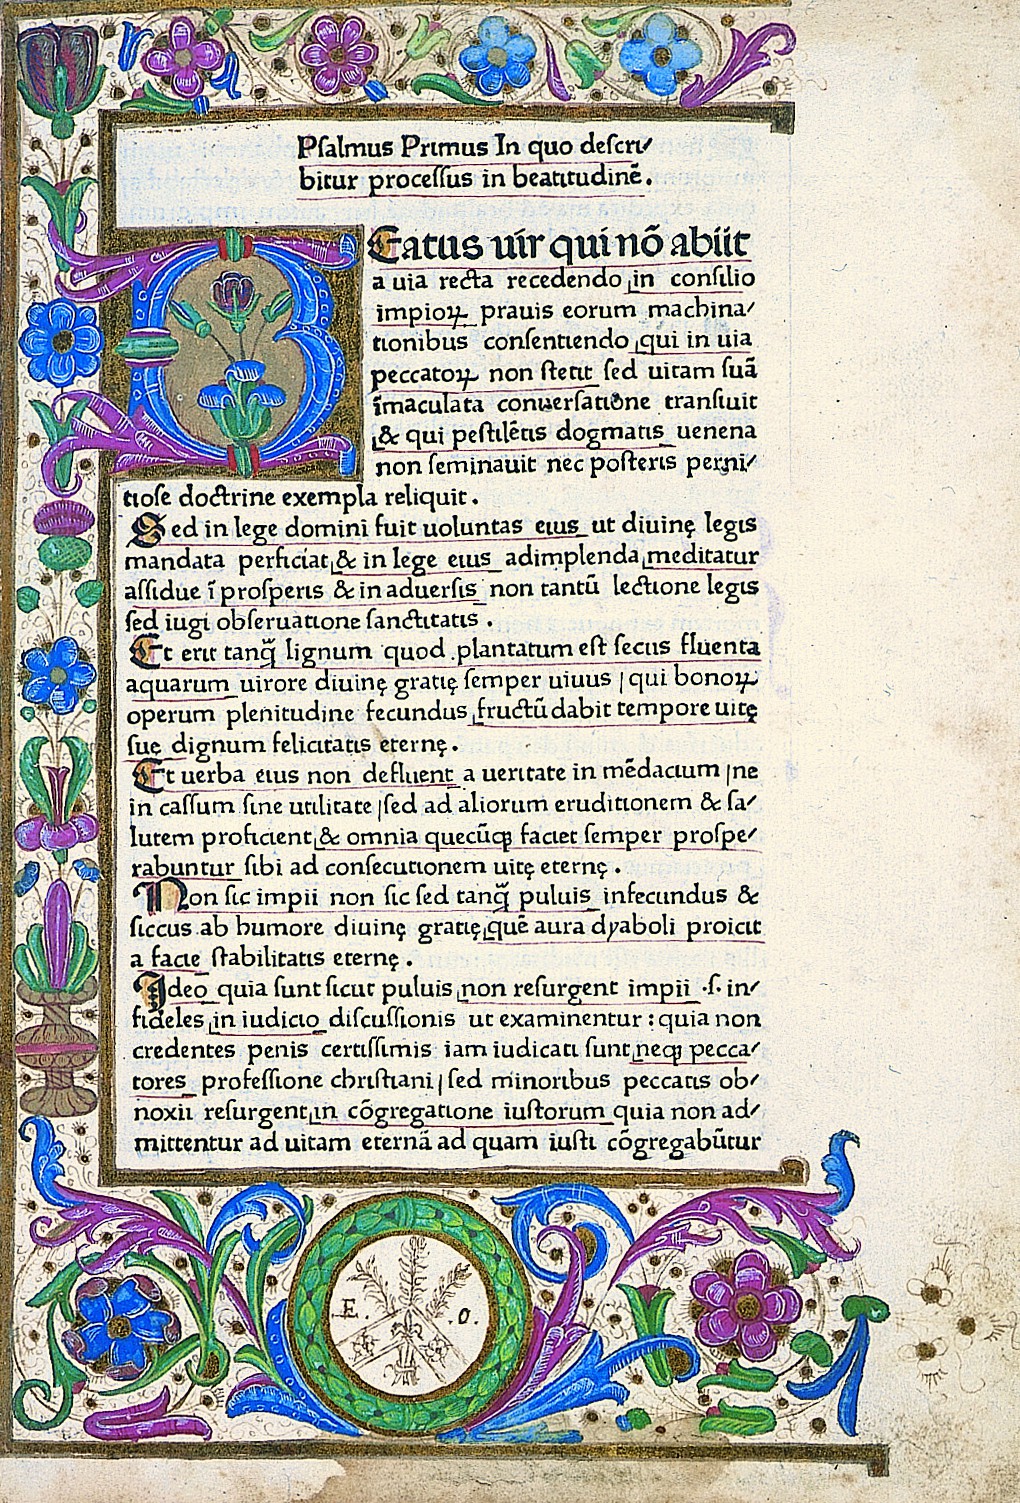 Pſalmus Primus In quo deſcri/
bitur proceſſus in beatitudinē.
Eatus uir qui nō abiit
a uia recta recedendo in conſilio
impioꝝ prauis eorum machina/
tionibus conſentiendo qui in uia
peccatoꝝ non ſtetit ſed uitam ſuā
īmaculata conuerſatione tranſiuit
& qui peſtilētis dogmatis uenena
non ſeminauit nec poſteris perni/
tioſe doctrine exempla reliquit.
Sed in lege domini fuit uoluntas eius ut diuinę legis
mandata perficiat & in lege eius adimplenda meditatur
aſſidue ī proſperis & in aduerſis non tantū lectione legis
ſed iugi obſeruatione ſanctitatis.
Et erit tanq̃ lignum quod plantatum eſt ſecus fluenta
aquarum uirore diuinę gratię ſemper uiuus | qui bonoꝝ
operum plenitudine fecundus fructū dabit tempore uitę
ſuę dignum felicitatis eternę.
Et uerba eius non defluent a ueritate in mēdacium | ne
in caſſum ſine utilitate | ſed ad aliorum eruditionem & ſa/
lutem proficient & omnia quecūꝗ faciet ſemper proſpe/
rabuntur ſibi ad conſecutionem uitę eternę.
Non ſic impii non ſic ſed tanq̃ puluis infecundus &
ſiccus ab humore diuinę gratię quē aura dyaboli proicit
a facie ſtabilitatis eternę.
Ideo quia ſunt ſicut puluis non reſurgent impii .ſ. in/
fideles in iudicio diſcuſſionis ut examinentur : quia non
credentes penis certiſſimis iam iudicati ſunt neꝗ pecca/
tores profeſſione chriſtiani | ſed minoribus peccatis ob/
noxii reſurgent in cōgregatione iuſtorum quia non ad/
mittentur ad uitam eternā ad quam iuſti cōgregabūtur
E. .O.